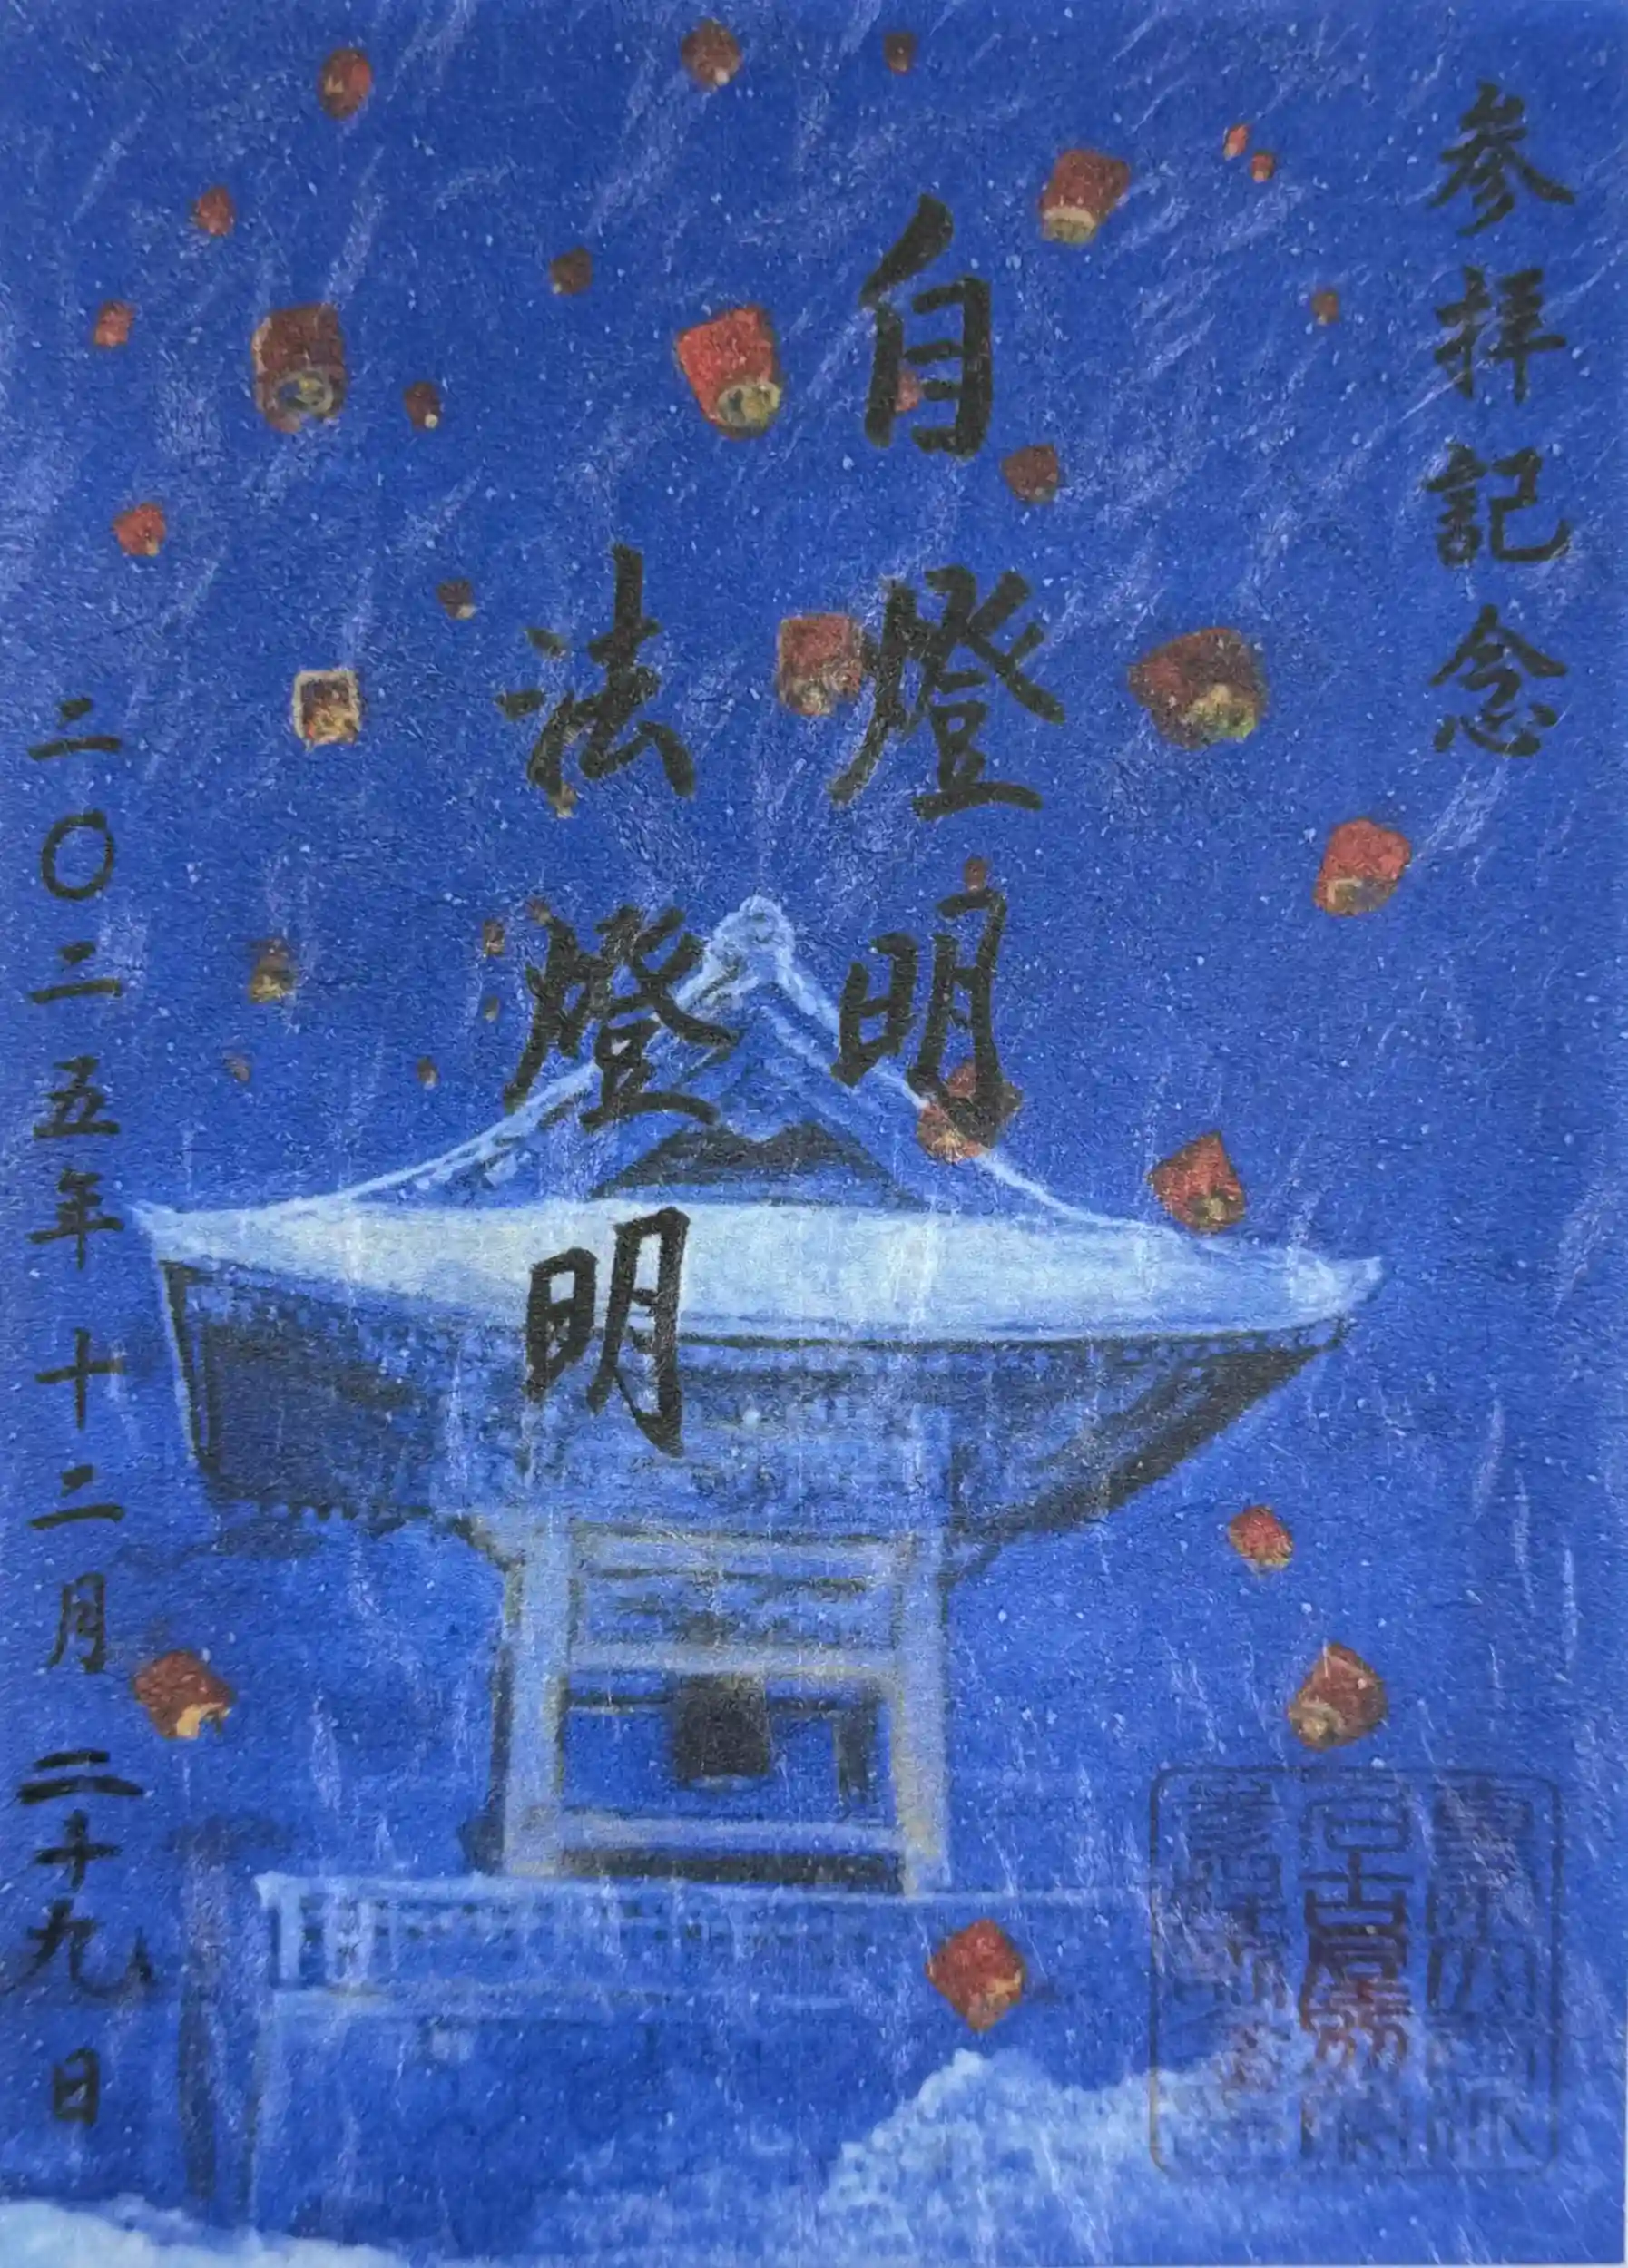 参拝記念
自燈明
法燈明
二〇二五年十二月二十九日